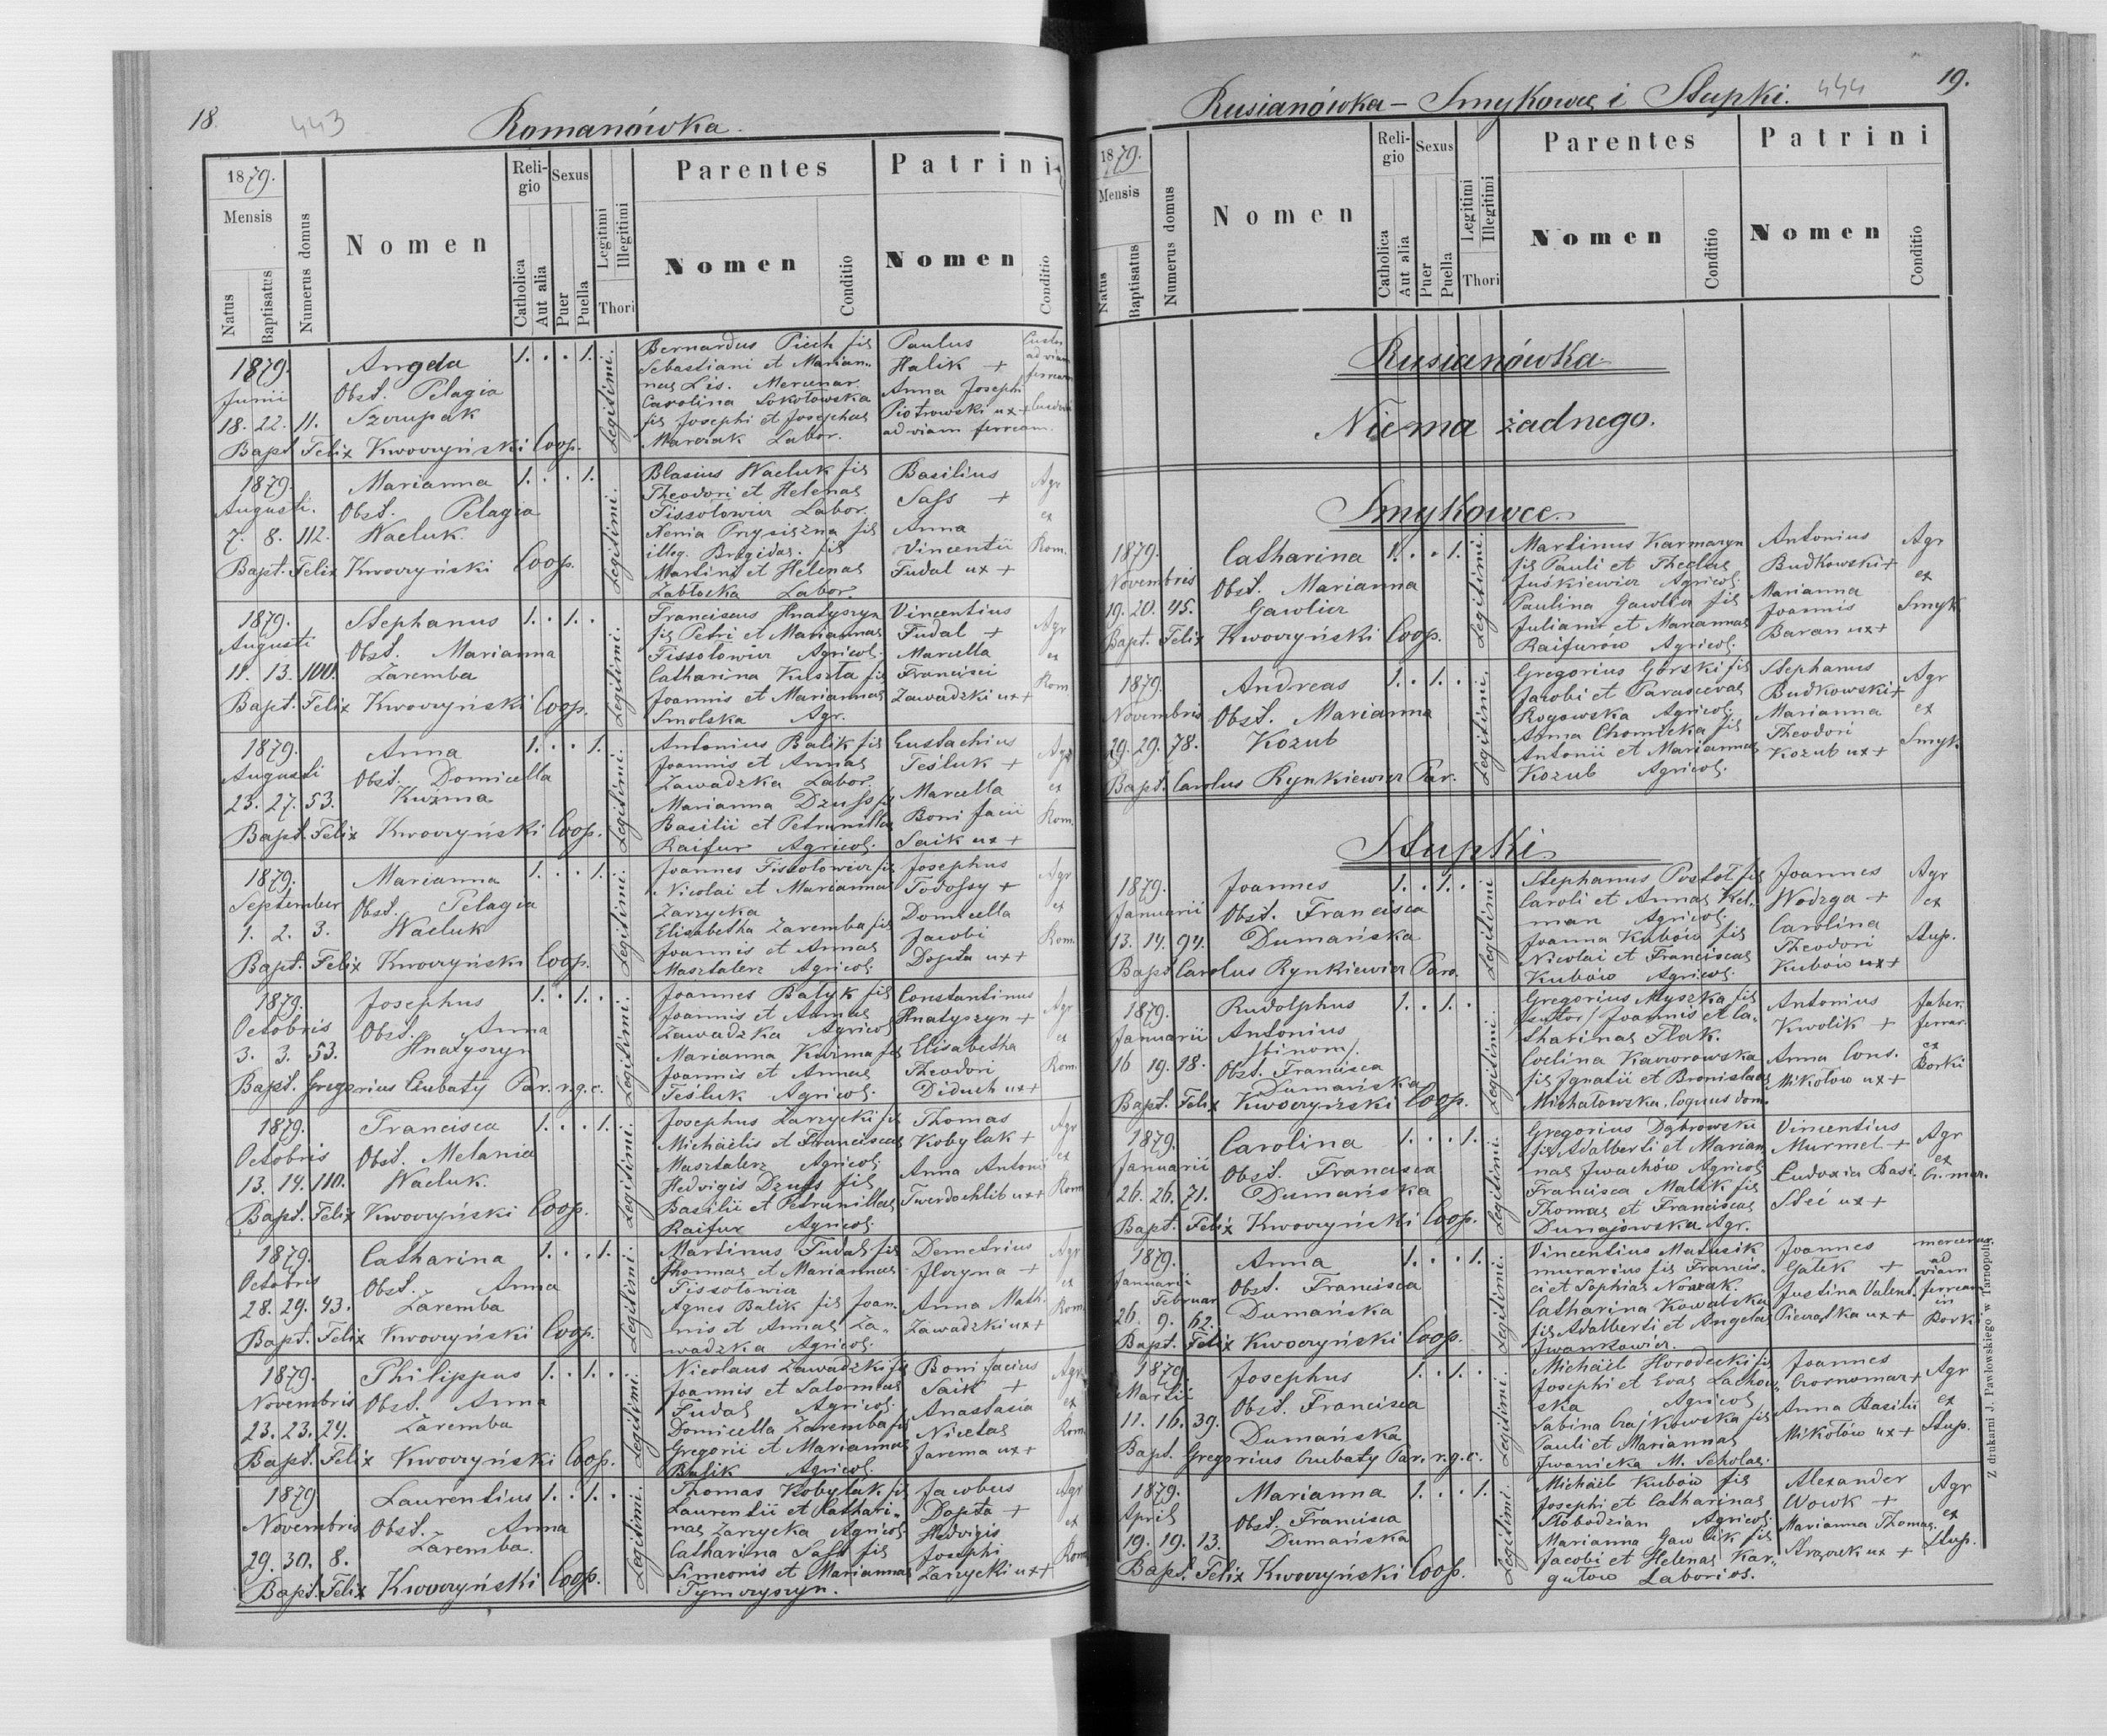 18.
443
Romanówka.
1879.
Mensis
Natus
Baptisatus
Numerus domus
Nomen
Religio
Catholica
Aut alia
Sexus
Puer
Puella
Legitimi
Illegitimi
Thori
Parentes
Nomen
Conditio
Patrini
Nomen
Conditio
1879. Angela 1. . . 1. Legitimi. Bernardus Piech fil Paulus
Junii Obst. Pelagia Sebastiani et Marian- Halik +
18. 22. 11. Szczupak nae Lis. Mercenar. Anna Josephi
Carolina Sokołowska Piotrowski ux +
fil Josephi et Josephae ad viam ferream.
Bapt. Felix Kwoczyński Coop. Marciak Labor.
1879. Marianna 1. . . 1. Legitimi. Blasius Wacluk fil Basilius Agr
Augusti. Obst. Pelagia Theodori et Helenae Sass + ex
7. 8. 112. Wacluk. Fissolowicz Labor. Anna Rom.
Xenia Przysiężna fil Vincentii
illeg. Brigidae. fil Fudal ux +
Bapt. Felix Kwoczyński Coop. Martini et Helenae
Zabłocka Labor.
1879. Stephanus 1. . 1. . Legitimi. Franciscus Hnatyszyn Vincentius Agr
Augusti Obst. Marianna fil Petri et Mariannae Fudal + ex
11. 13. 100. Zaremba Fissolowicz Agricol. Marcella Rom
Catharina Kuszta fil Francisci
Bapt. Felix Kwoczyński Coop. Joannis et Mariannae Zawadzki ux +
Smolska Agr.
1879. Anna 1. . . 1. Legitimi. Antonius Balik fil Eustachius Agr
Augusti Obst. Domicella Joannis et Annae Teśluk + ex
23. 27. 53. Kuźma Zawadzka Labor. Marcella Rom.
Marianna Dzuss fil Bonifacii
Bapt. Felix Kwoczyński Coop. Basilii et Petrunillae Saik ux +
Raifur Agricol.
1879. Marianna 1. . . 1. Legitimi. Joannes Fissolowicz fil Josephus Agr
September Obst. Pelagia Nicolai et Mariannae Todossy + ex
1. 2. 3. Wacluk Zarzycka Domicella Rom.
Elisabetha Zaremba fil Jacobi
Bapt. Felix Kwoczyński Coop. Joannis et Annae Dopta ux +
Masztalerz Agricol.
1879. Josephus 1. . 1. . Legitimi. Joannes Bałyk fil Constantinus Agr
Octobris Obst. Anna Joannis et Annae Hnatyszyn + ex
3. 3. 53. Hnatyszyn Zawadzka Agricol Elisabetha Rom.
Marianna Kuźma fil Theodori
Bapt. Gregorius Czubaty Par. r.g.c. Joannis et Annae Diduch ux +
Teśluk Agricol.
1879. Francisca 1. . . 1. Legitimi. Josephus Zarzycki fil Thomas Agr
Octobris Obst. Melania Michaelis et Franciscae Kobylak + ex
13. 14. 110. Wacluk. Masztalerz Agricol. Anna Antonii Rom
Hedvigis Dzuss fil Twerdochlib ux +
Bapt. Felix Kwoczyński Coop. Basilii et Petrunillae
Raifur Agricol.
1879. Catharina 1. . . 1. Legitimi. Martinus Fudal fil Demetrius Agr
Octobris Obst. Anna Thomae et Mariannae Horyna + ex
28. 29. 43. Zaremba Fissolowicz Anna Math. Rom.
Agnes Balik fil Joan- Zawadzki ux +
Bapt. Felix Kwoczyński Coop. nis et Annae Za-
wadzka Agricol.
1879. Philippus 1. . 1. . Legitimi. Nicolaus Zawadzki fil Bonifacius Agr
Novembris Obst. Anna Joannis et Salomeae Saik + ex
23. 23. 24. Zaremba Fudal Agricol. Anastasia Rom
Domicella Zaremba fil Nicetae
Bapt. Felix Kwoczyński Coop. Gregorii et Mariannae Jarema ux +
Balik Agricol.
1879 Laurentius 1. . 1. . Legitimi. Thomas Kobylak fil Jacobus Agr
Novembris Obst. Anna Laurentii et Cathari- Dopta + ex
29. 30. 8. Zaremba. nae Zarzycka Agricol Hedvigis Rom
Catharina Sass fil Josephi
Bapt. Felix Kwoczyński Coop. Simeonis et Mariannae Zarzycki ux +
Tymczyszyn.
19.
444
Rusianówka – Smykowce i Stupki.
1879.
Mensis
Natus
Baptisatus
Numerus domus
Nomen
Religio
Catholica
Aut alia
Sexus
Puer
Puella
Legitimi
Illegitimi
Thori
Parentes
Nomen
Conditio
Patrini
Nomen
Conditio
Rusianówka
Niema żadnego.
Smykowce.
1879. Catharina 1. . . 1. Legitimi. Martinus Karmazyn Antonius Agr
Novembris Obst. Marianna fil Pauli et Theclae Budkowski + ex
19. 20. 45. Gawlicz Juśkiewicz Agricol. Marianna Smyk
Paulina Gawlicz fil Joannis
Bapt. Felix Kwoczyński Coop. Juliani et Mariannae Baran ux +
Raifurów Agricol.
1879. Andreas 1. . 1. . Legitimi. Gregorius Górski fil Stephanus Agr
Novembris Obst. Marianna Jacobi et Parascevae Budkowski + ex
29. 29. 78. Kozub Rogowska Agricol. Marianna Smyk
Anna Chomicka fil Theodori
Bapt. Carolus Rynkiewicz Par. Antonii et Mariannae Kozub ux +
Kozub Agricol.
Stupki
1879. Joannes 1. . 1. . Legitimi Stephanus Postoł fil Joannes Agr
Januarii Obst. Francisca Caroli et Annae Kel- Wodzga + ex
13. 14. 94. Dumańska man Agricol. Carolina Stup.
Joanna Kubów fil Theodori
Bapt Carolus Rynkiewicz Paro. Nicolai et Franciscae Kubów ux +
Kubów Agricol.
1879. Rudolphus 1. . 1. . Legitimi. Gregorius Myszka fil Antonius faber
Januarii Antonius /sutor/ Joannis et Ca- Kwolik + ferrar.
16 19. 18. /binom/. tharinae Flak. Anna Cons. ex
Obst. Francisca Ewelina Kaczorowska Mikołow ux + Borki
Dumańska fil Ignatii et Bronislaae
Bapt. Felix Kwoczyński Coop. Michałowska,
1879. Carolina 1. . . 1. Legitimi. Gregorius Dąbrowski Vincentius Agr
Januarii Obst. Francisca fil Adalberti et Marian Murmel + ex
26. 26. 71. Dumańska nae Iwachów Agricol Eudoxia Basi.
Francisca Malik fil Steć ux +
Bapt. Felix Kwoczyński Coop. Thomae et Franciscae
Dunajowska Agr.
1879. Anna 1. . . 1. Legitimi. Vincentius Matusik Joannes mercenar
Januarii Obst. Francisca murarius fil Francis- Gałek + ad viam
Februar Dumańska ci et Sophiae Nowak. Justina Valent. ferream
26. 9. 62. Catharina Kowalska Pieczątka ux + in
Bapt. Felix Kwoczyński Coop. fil Adalberti et Angelae Borki
Iwankowicz.
1879. Josephus 1. . 1. . Legitimi. Michael Horodecki fil Joannes Agr
Martii Obst. Francisca Josephi et Evae Lachow- Czornomaz + ex
11. 16. 39. Dumańska ska Agricol Anna Basilii Stup.
Sabina Czajkowska fil Mikołów ux +
Bapt. Gregorius Czubaty Par. r.g.c. Pauli et Mariannae
Iwanicka M. Scholae.
1879. Marianna 1. . . 1. Legitimi. Michael Kubow fil Alexander Agr
April Obst. Francisca Josephi et Catharinae Wowk + ex
19. 19. 13. Dumańska Słobodzian Agricol. Marianna Thomae Stup.
Marianna Gawlik fil ux +
Bapt. Felix Kwoczyński Coop. Jacobi et Helenae Kar-
gutow Laborios.
Z drukarni J. Pawłowskiego w Tarnopolu.